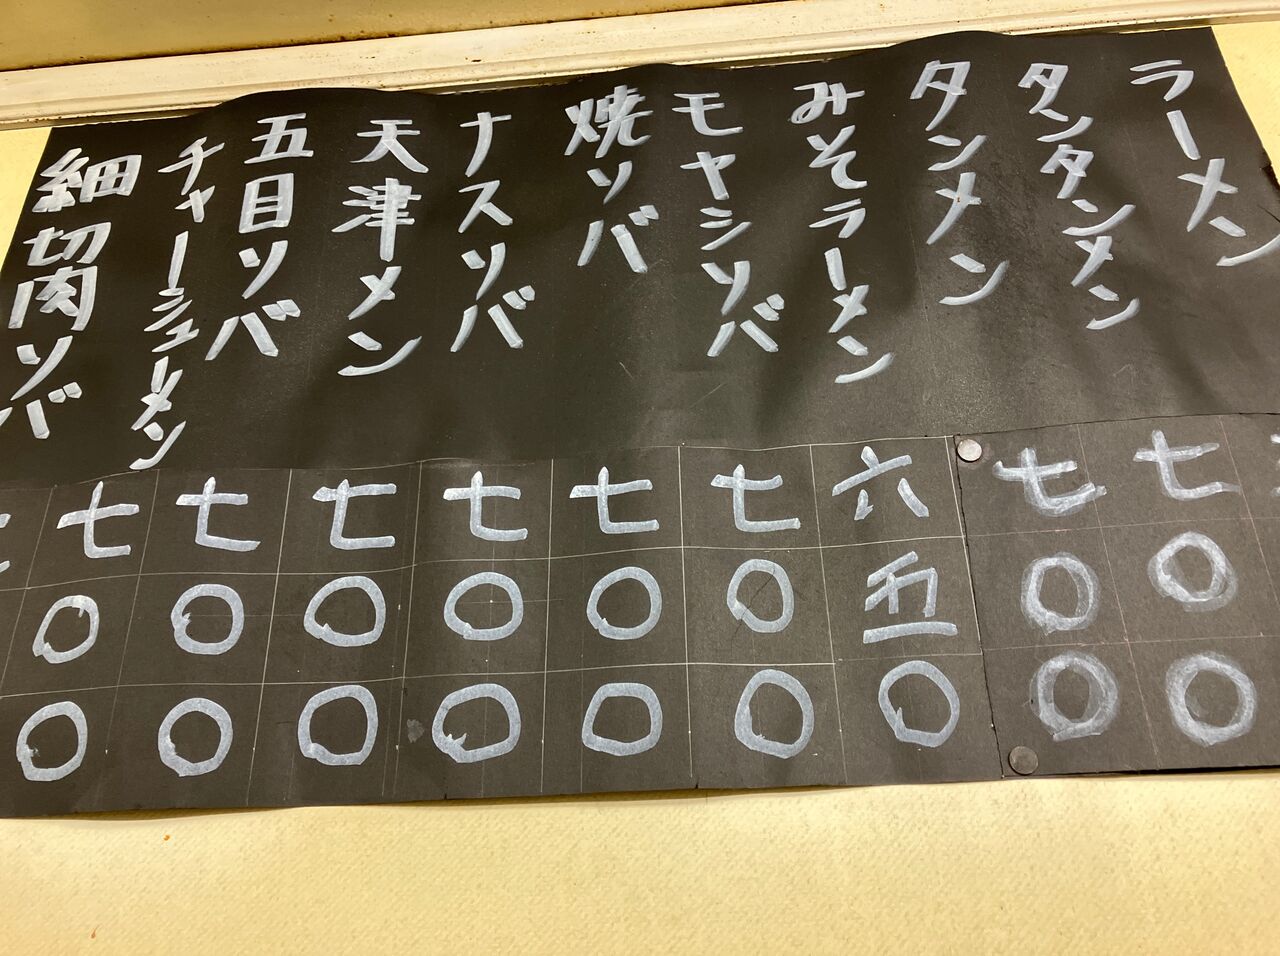 ラーメン
タンタンメン 七〇〇
タンメン 七〇〇
みそラーメン 六五〇
モヤシソバ 七〇〇
焼ソバ 七〇〇
ナスソバ 七〇〇
天津メン 七〇〇
五目ソバ 七〇〇
チャーシューメン 七〇〇
細切肉ソバ